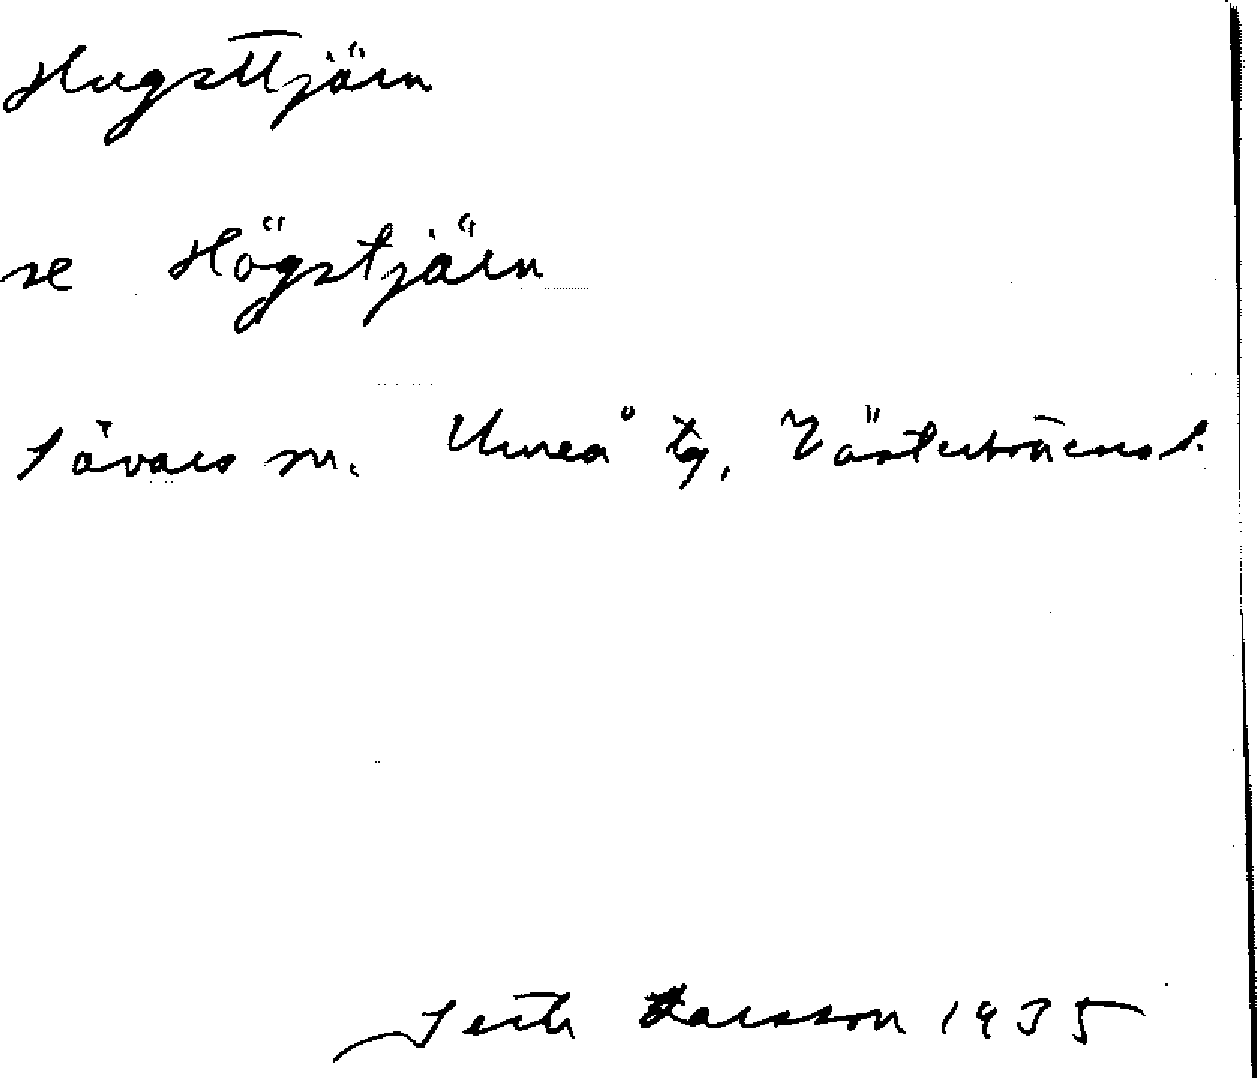 Hugsttjärn
se Högstjärn
Sävars sn. Umeå tg, Västerbottens l.
Seth Larsson 1935